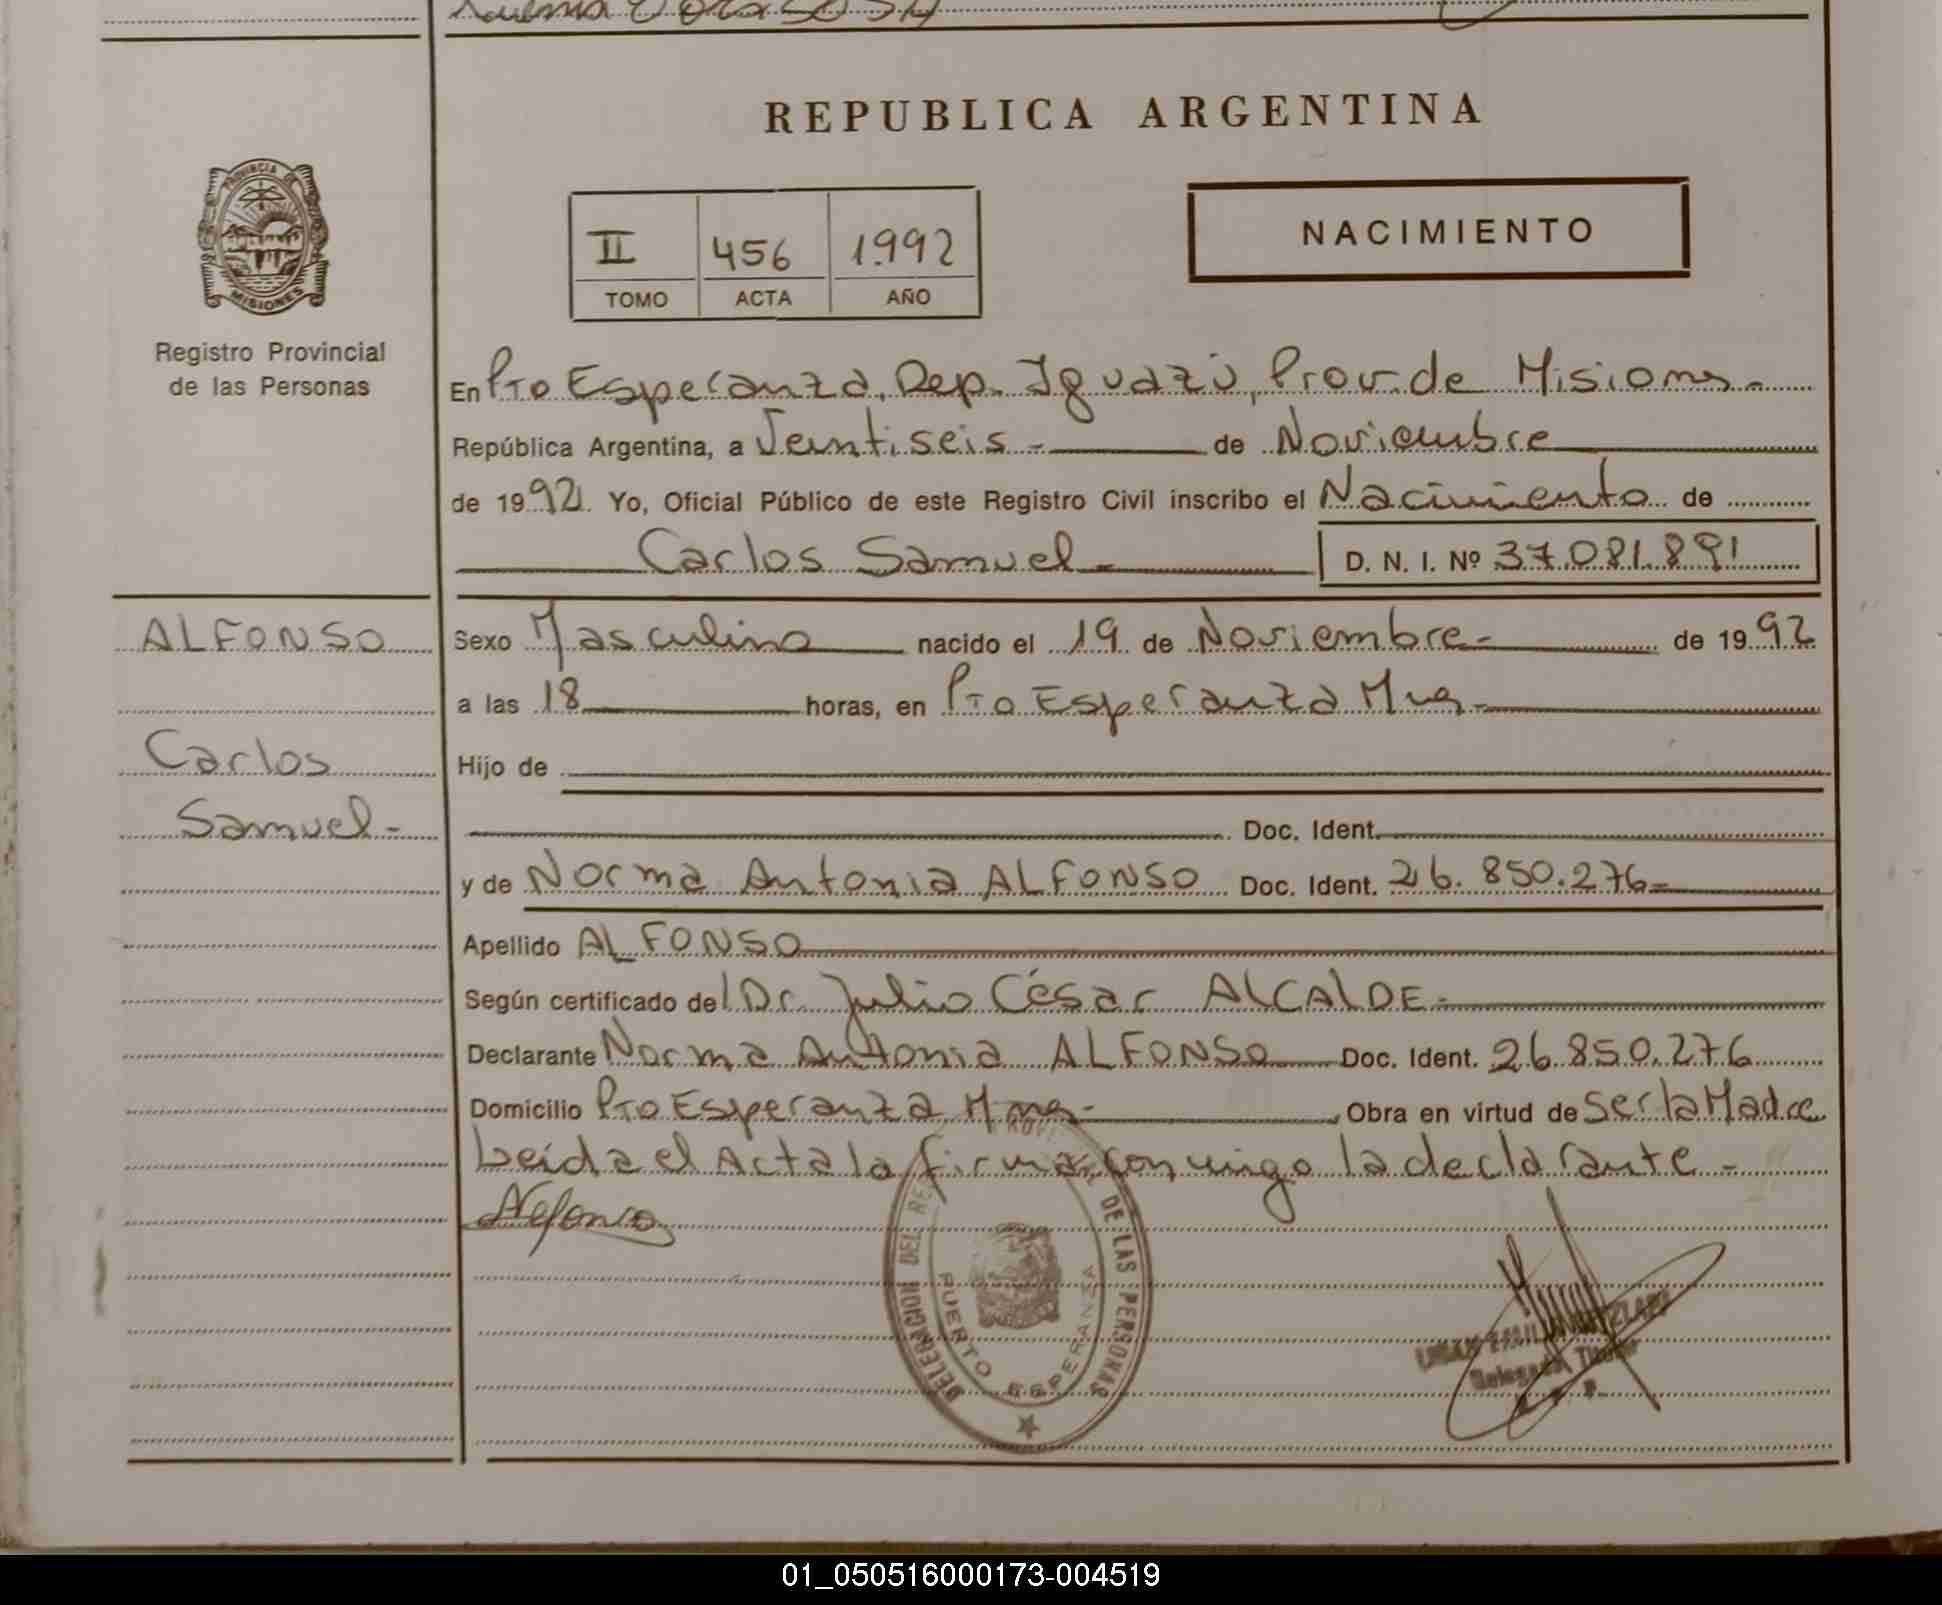 REPUBLICA ARGENTINA
PROVINCIA DE
MISIONES
Registro Provincial
de las Personas
II 456 1.992
TOMO ACTA AÑO
NACIMIENTO
En Pto Esperanza, Dep. Iguazú, Prov. de Misiones-
República Argentina, a Veintiseis.- de Noviembre
de 1992. Yo, Oficial Público de este Registro Civil inscribo el Nacimiento de
Carlos Samuel- D. N. I. Nº 37.081.891
ALFONSO
Carlos
Samuel-
Sexo Masculino nacido el 19 de Noviembre- de 1992
a las 18 horas, en Pto Esperanza Mnes-
Hijo de
Doc. Ident.
y de Norma Antonia ALFONSO Doc. Ident. 26.850.276-
Apellido ALFONSO
Según certificado del Dr. Julio César ALCALDE-
Declarante Norma Antonia ALFONSO Doc. Ident. 26.850.276
Domicilio Pto Esperanza Mnes- Obra en virtud de Ser la Madre
Leida el Acta la firma conmigo la declarante-
Alfonso
DELEGACION DEL RE DE LAS PERSONAS
PUERTO ESPERANZA
Delegado Titular
01_050516000173-004519